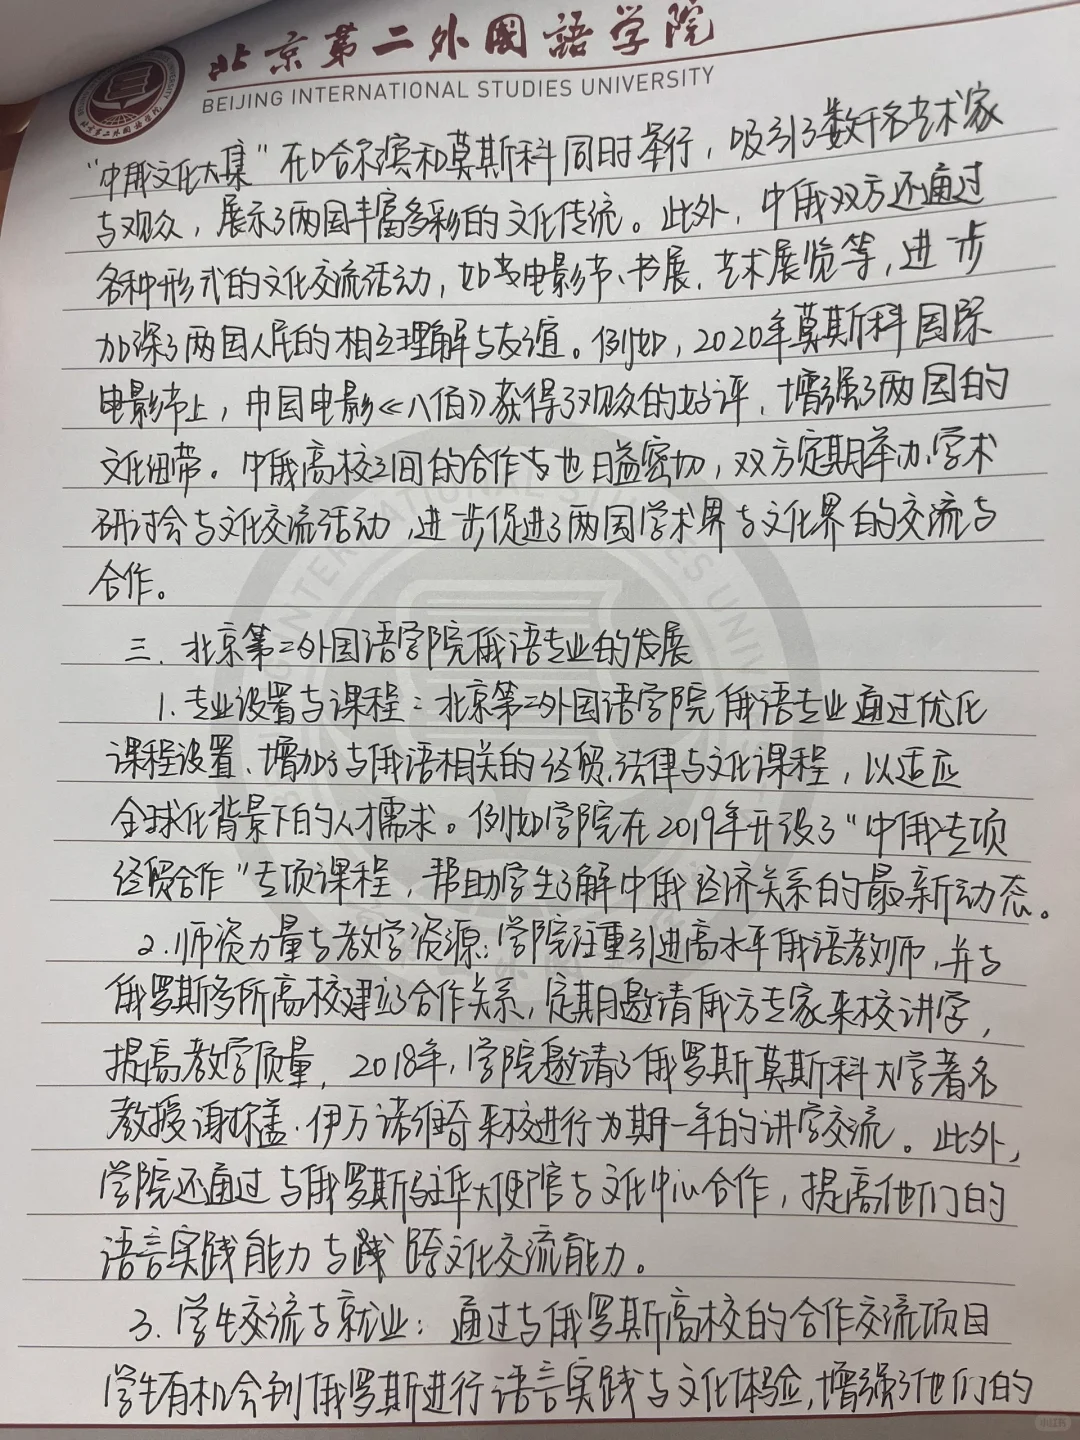 北京第二外国语学院
BEIJING INTERNATIONAL STUDIES UNIVERSITY
“中俄文化大集”在哈尔滨和莫斯科同时举行，吸引了数千名艺术家
与观众，展示了两国丰富多彩的文化传统。此外，中俄双方还通过
各种形式的文化交流活动，如电影节、书展、艺术展览等，进一步
加深了两国人民的相互理解与友谊。例如，2020年莫斯科国际
电影节上，中国电影《八佰》获得了观众的好评，增强了两国的
文化纽带。中俄高校之间的合作也日益密切，双方定期举办学术
研讨会与文化交流活动，进一步促进了两国学术界与文化界的交流与
合作。
三、北京第二外国语学院俄语专业的发展
1.专业设置与课程：北京第二外国语学院俄语专业通过优化
课程设置、增加了与俄语相关的经贸、法律与文化课程，以适应
全球化背景下的人才需求。例如学院在2019年开设了“中俄专项
经贸合作”专项课程，帮助学生了解中俄经济关系的最新动态。
2.师资力量与教学资源：学院注重引进高水平俄语教师，并与
俄罗斯多所高校建立合作关系，定期邀请俄方专家来校讲学，
提高教学质量，2018年，学院邀请了俄罗斯莫斯科大学著名
教授谢尔盖·伊万诺维奇来校进行为期一年的讲学交流。此外，
学院还通过与俄罗斯驻华大使馆与文化中心合作，提高他们的
语言实践能力与跨文化交流能力。
3.学生交流与就业：通过与俄罗斯高校的合作交流项目
学生有机会到俄罗斯进行语言实践与文化体验，增强了他们的
小红书